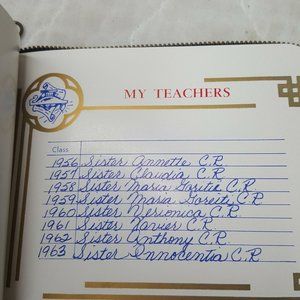 MY TEACHERS
Class
1956 Sister Annette C.R.
1957 Sister Claudia C.R.
1958 Sister Maria Goritie C.R.
1959 Sister Maria Goreite C.R.
1960 Sister Verionica C.R.
1961 Sister Xavier C.R.
1962 Sister Anthony C.R.
1963 Sister Innocentia C.R.